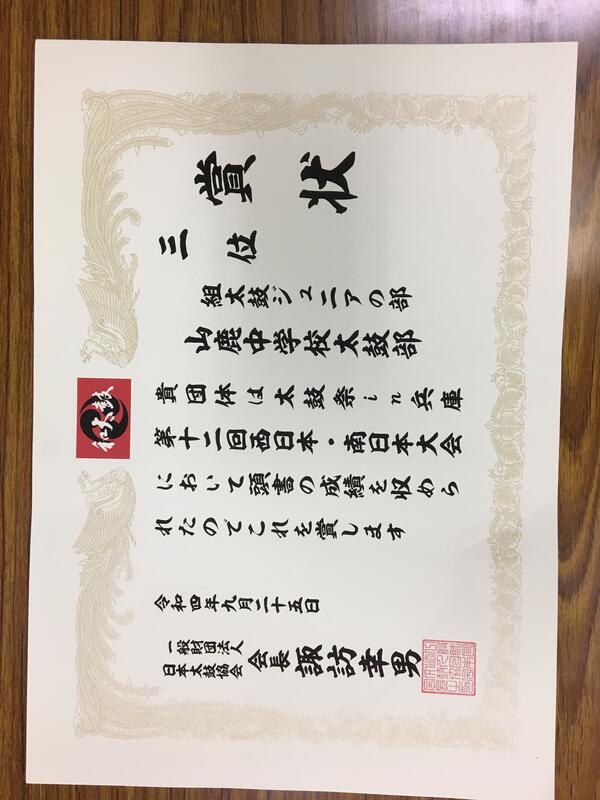 賞状
三位
組太鼓ジュニアの部
山鹿中学校太鼓部
貴団体は太鼓祭in兵庫
第十二回西日本・南日本大会
において頭書の成績を収めら
れたのでこれを賞します
令和四年九月二十五日
一般財団法人
日本太鼓協会
会長 諏訪幸男